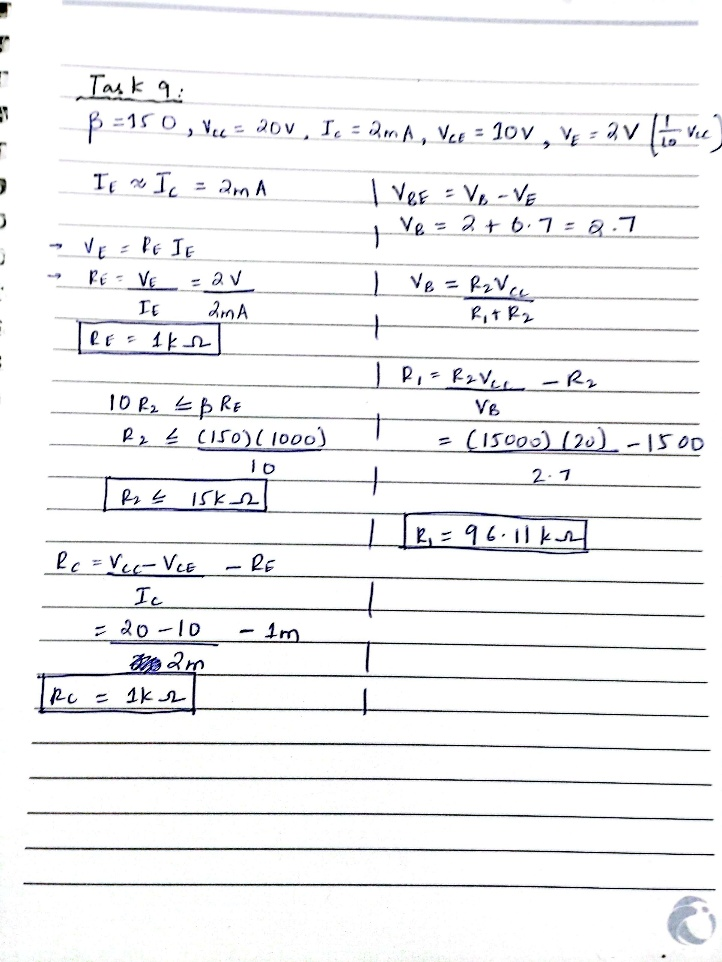 Task 9:
β = 150, Vcc = 20V, Ic = 2mA, VCE = 10V, VE = 2V (1/10 Vcc)
IE ≈ Ic = 2mA
→ VE = RE IE
→ RE = VE/IE = 2V/2mA
RE = 1kΩ
10 R2 ≤ β RE
R2 ≤ (150)(1000)/10
R2 ≤ 15kΩ
Rc = Vcc - VCE/Ic - RE
= 20 - 10/2m - 1m
Rc = 1kΩ
VBE = VB - VE
VB = 2 + 0.7 = 2.7
VB = R2Vcc/R1 + R2
R1 = R2Vcc/VB - R2
= (15000)(20)/2.7 - 1500
R1 = 96.11kΩ